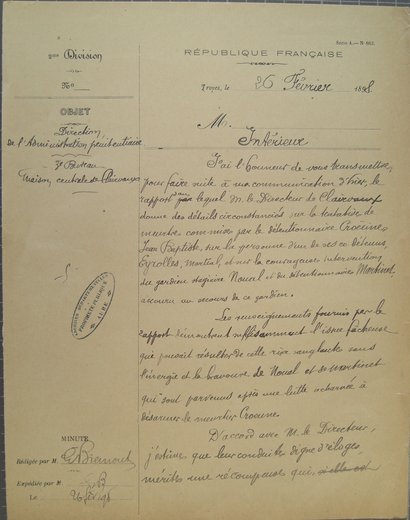 Série A. — N° 663.
2me Division
RÉPUBLIQUE FRANÇAISE
N°
Troyes, le 26 Février 1898
OBJET
M.
Direction
de l'Administration pénitentiaire
Intérieur
Bureau
Maison centrale de Clairvaux
J'ai l'honneur de vous transmettre,
pour faire suite à ma communication d'hier, le
rapport par lequel M. le Directeur de Clairvaux
donne des détails circonstanciés sur la tentative de
meurtre commise par le détentionnaire
Jean Baptiste, sur la personne d'un de ses co détenus,
Eyrolles, Martial, et sur la courageuse intervention
du gardien stagiaire Noual et du détentionnaire Martinet
accouru au secours de ce gardien.
ARCHIVES DÉPARTEMENTALES
AUBE
Les renseignements fournis par le
rapport démontrent suffisamment l'issue fâcheuse
que pouvait résulter de cette rixe sanglante sans
l'énergie et la bravoure de Noual et de Martinet
qui sont parvenus après une lutte acharnée à
désarmer le meurtrier
D'accord avec M. le Directeur,
MINUTE
j'estime que leur conduite digne d'éloges,
Rédigée par M
mérite une récompense qui,
Expédiée par M
Le 26 fév 98